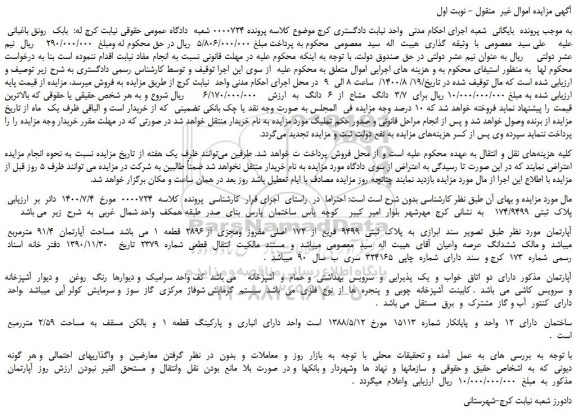 آگهی مزایده اموال غیر منقول - نوبت اول
به موجب پرونده بایگانی شعبه اجرای احکام مدنی واحد نیابت دادگستری کرج موضوع کلاسه پرونده ۰۰۰۰۷۲۴ شعبه دادگاه عمومی حقوقی نیابت کرج له: بابک رونق باغبانی
علیه علی سید معصومی با وثیقه گذاری هیبت اله سید معصومی محکوم به پرداخت مبلغ ۵/۸۰۶/۰۰۰/۰۰۰ ریال در حق محکوم له ومبلغ ۲۹۰/۰۰۰/۰۰۰ ریال نیم
عشر دولتی ریال به عنوان نیم عشر دولتی در حق صندوق دولت، با توجه به اینکه محکوم علیه در مهلت قانونی نسبت به انجام مفاد نیابت اقدام ننموده است بنا به درخواست
محکوم لها به منظور استیفای محکوم به و هزینه های اجرایی اموال متعلق به محکوم علیه از سوی این اجرا توقیف و توسط کارشناس رسمی دادگستری به شرح زیر توصیف و
ارزیابی شده است که مال توقیف شده در تاریخ ۱۴۰۰/۸/۱۹ ساعت ۸ الی ۹ در محل اجرای احکام مدنی واحد نیابت کرج از طریق مزایده به فروش میرسد. مزایده از قیمت پایه
ارزیابی شده به مبلغ ۱۰/۰۰۰/۰۰۰/۰۰۰ ریال برای ۳/۷ دانگ مشاع از ۶ دانگ به ارزش ۶/۱۷۰/۰۰۰/۰۰۰ ریال شروع و به هر شخص حقیقی یا حقوقی که بالاترین
قیمت را پیشنهاد نماید فروخته خواهد شد که ۱۰ درصد وجه مزایده فی المجلس به صورت وجه نقد یا چک بانکی تضمینی که از خریدار است و الباقی ظرف یک ماه از تاریخ
مزایده از برنده وصول خواهد شد و پس از انجام مراحل قانونی و صدور حکم تملیک مورد مزایده به نام خریدار منتقل خواهد شد در صورتی که در مهلت مقرر خریدار وجه مزایده را را
پرداخت ننماید سپرده وی پس از کسر هزینه‌های مزایده به نفع دولت ثبت و مزایده تجدید می‌گردد.
کلیه هزینه‌های نقل و انتقال به عهده محکوم علیه است و از محل فروش پرداخت ت خواهد شد. طرفین می‌توانند ظرف یک هفته از تاریخ مزایده نسبت به نحوه انجام مزایده
اعتراض نمایند که در این صورت تا رسیدگی به اعتراض از سوی دادگاه مورد مزایده به نام خریدار منتقل نخواهد شد ضمناً طالبین به شرکت در مزایده می توانند ظرف ۵ روز قبل از
مزایده با اطلاع این اجرا از مال مورد مزایده بازدید نمایند چنانچه روز مزایده مصادف با ایام تعطیل باشد روز بعد در همان ساعت و مکان برگزار خواهد شد.
مال مورد مزایده و بهای آن طبق نظر کارشناسی بدون شرح است است: احتراما در راستای اجرای قرار کارشناسی پرونده کلاسه ۰۰۰۰۷۲۴ مورخ ۱۴۰۰/۷/۴ دائر بر ارزیابی
پلاک ثبتی ۱۷۴/۹۴۹۹ به نشانی کرج مهرشهر بلوار امیر کبیر کوچه یاس ساختمان پارس بنای صدر طبقه همکف واحد شمال غربی به شرح زیر می باشد
آپارتمان مورد نظر طبق تصویر سند ابرازی به پلاک ثبتی ۹۴۹۹ فرعی از ۱۷۴ اصلی مفروز ومجزی از ۲۸۹۶ قطعه ۱ می باشد مساحت آپارتمان ۹۱/۴ مترمربع
میباشد و مالک ششدانگ عرصه واعیان آقای هیبت اله سید معصومی میباشد و مستند مالکیت انتقال قطعی شماره ۲۳۷۹ تاریخ ۱۳۹۰/۱۱/۳۰ دفتر خانه اسناد
رسمی شماره ۱۷۳ کرج و سند دارای شماره چاپی ۳۲۴۱۶۵ سری ب سال ۹۰ میباشد .
آپارتمان مذکور دارای دو اتاق خواب و یک پذیرایی و سرویس بهداشتی و حمام و آشپزخانه می باشد کف واحد سرامیک و دیوارها رنگ روغن و دیوار آشپزخانه
و سرویس کاشی می باشد . کابینت آشپزخانه چوبی و پنجره ها از نوع فلزی می باشد سیستم گرمایشی شوفاژ مرکزی گاز سوز و سرمایش کولر آبی میباشد .واحد
دارای کنتور آب و گاز مشترک و برق مستقل می باشد .
ساختمان دارای ۱۲ واحد و پایانکار شماره ۱۵۱۱۳ مورخ ۱۳۸۸/۵/۱۲ است واحد دارای انباری و پارکینگ قطعه ۱ و بالکن مسقف به مساحت ۲/۵۹ مترمربع
است .
با توجه به بررسی های به عمل آمده و تحقیقات محلی با توجه به بازار روز و معاملات و بدون در نظر گرفتن معارضین و واگذاریهای احتمالی و هر گونه
دیونی که به اشخاص حقیق و حقوقی و سازمانها و نهاد ها وشهردار و بانکها و در صورت بلا مانع بودن نقل وانتقال و مستحق الغیر نبودن ارزش روز آپارتمان
مذکور به مبلغ ۱۰/۰۰۰/۰۰۰/۰۰۰ ریال ارزیابی واعلام میگردد .
دادورز شعبه نیابت کرج-شهرستانی